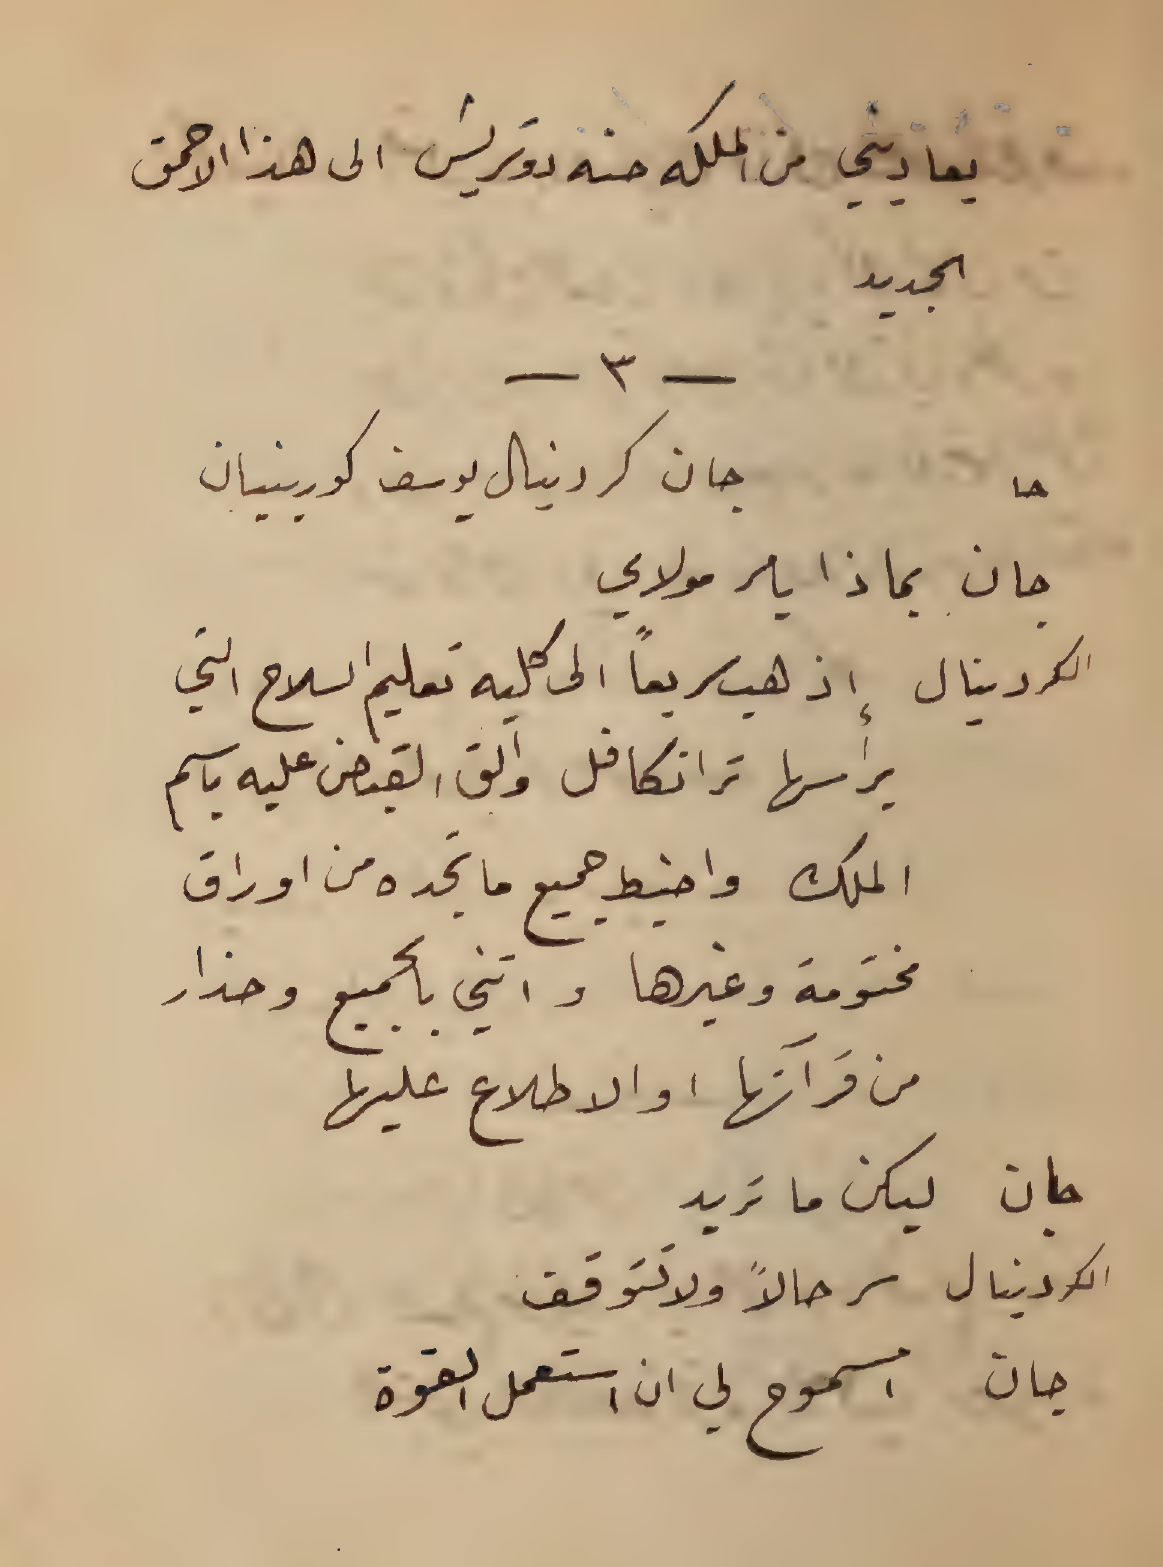 يعاديني من الملكه حنه دوتريش الى هذا الاحمق
الجديد
— ٣ —
جا جان كردينال يوسف كورينيان
جان بماذا يامر مولاي
الكردينال إذهب سريعاً الى كليه تعليم السلاح التي
يرأسها ترانكافل وألق القبض عليه باسم
الملك واضبط جميع ما تجده من اوراق
مختومة وغيرها و اتني بالجميع وحذار
من قرآتها او الاطلاع عليها
جان ليكن ما تريد
الكردينال سر حالاً ولا تتوقف
جان امسموح لي ان استعمل القوة